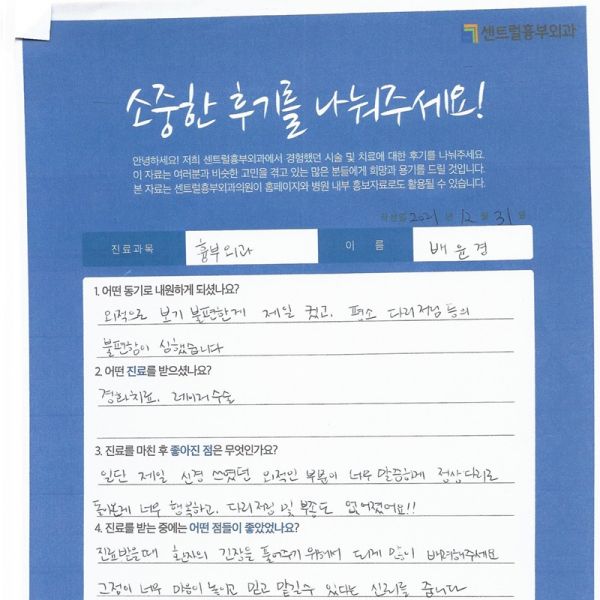 센트럴흉부외과
소중한 후기를 나눠주세요!
안녕하세요! 저희 센트럴흉부외과에서 경험했던 시술 및 치료에 대한 후기를 나눠주세요.
이 자료는 여러분과 비슷한 고민을 겪고 있는 많은 분들에게 희망과 용기를 드릴 것입니다.
본 자료는 센트럴흉부외과의원이 홈페이지와 병원 내부 홍보자료로도 활용될 수 있습니다.
작성일 2021 년 12 월 31 일
진료과목 흉부외과 이 름 배윤경
1. 어떤 동기로 내원하게 되셨나요?
외적으로 보기 불편한게 제일 컸고. 평소 다리저림 등의
불편함이 심했습니다
2. 어떤 진료를 받으셨나요?
경화치료. 레이저수술
3. 진료를 마친 후 좋아진 점은 무엇인가요?
일단 제일 신경 쓰였던 외적인 부분이 너무 말끔하게 정상다리로
돌아온게 너무 행복하고. 다리저림 및 부종도 없어졌어요!!
4. 진료를 받는 중에는 어떤 점들이 좋았었나요?
진료받을때 환자의 긴장을 풀어주기 위해서 되게 많이 배려해주세요
그점이 너무 마음이 놓이고 믿고 맡길수 있다는 신뢰를 줍니다